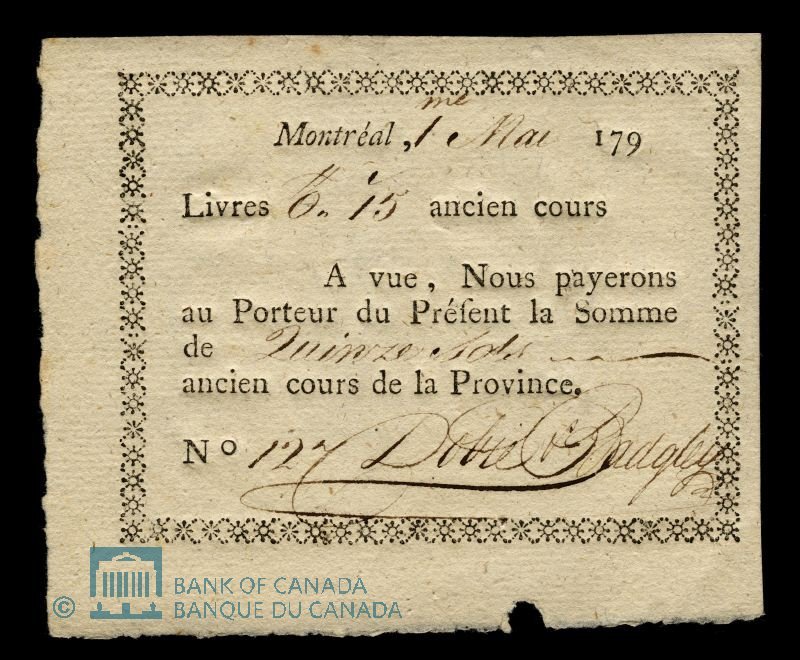 Montréal, 1me Mai 179
Livres 0 " 15 ancien cours
A vue, Nous payerons
au Porteur du Préſent la Somme
de Quinze Sols
ancien cours de la Province.
No 127 Dobie & Badgley
© BANK OF CANADA
BANQUE DU CANADA